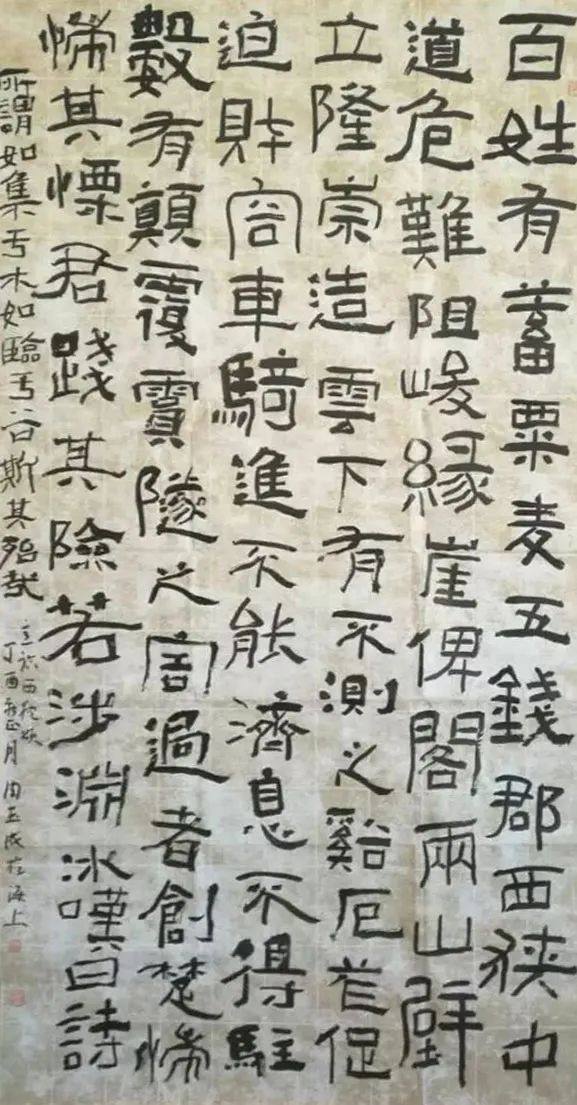 百姓有蓄粟麦五錢郡西狹中
道危難阻峻緣崖俾閣兩山壁
立隆崇造雲下有不測之谿厄笮促
迫財容車騎進不能濟息不得駐
數有顛覆霣隧之害過者創楚惴
惴其慄君踐其險若涉淵冰嘆曰詩
所謂如集于木如臨于谷斯其殆哉
西狹頌
丁酉 月 於海上